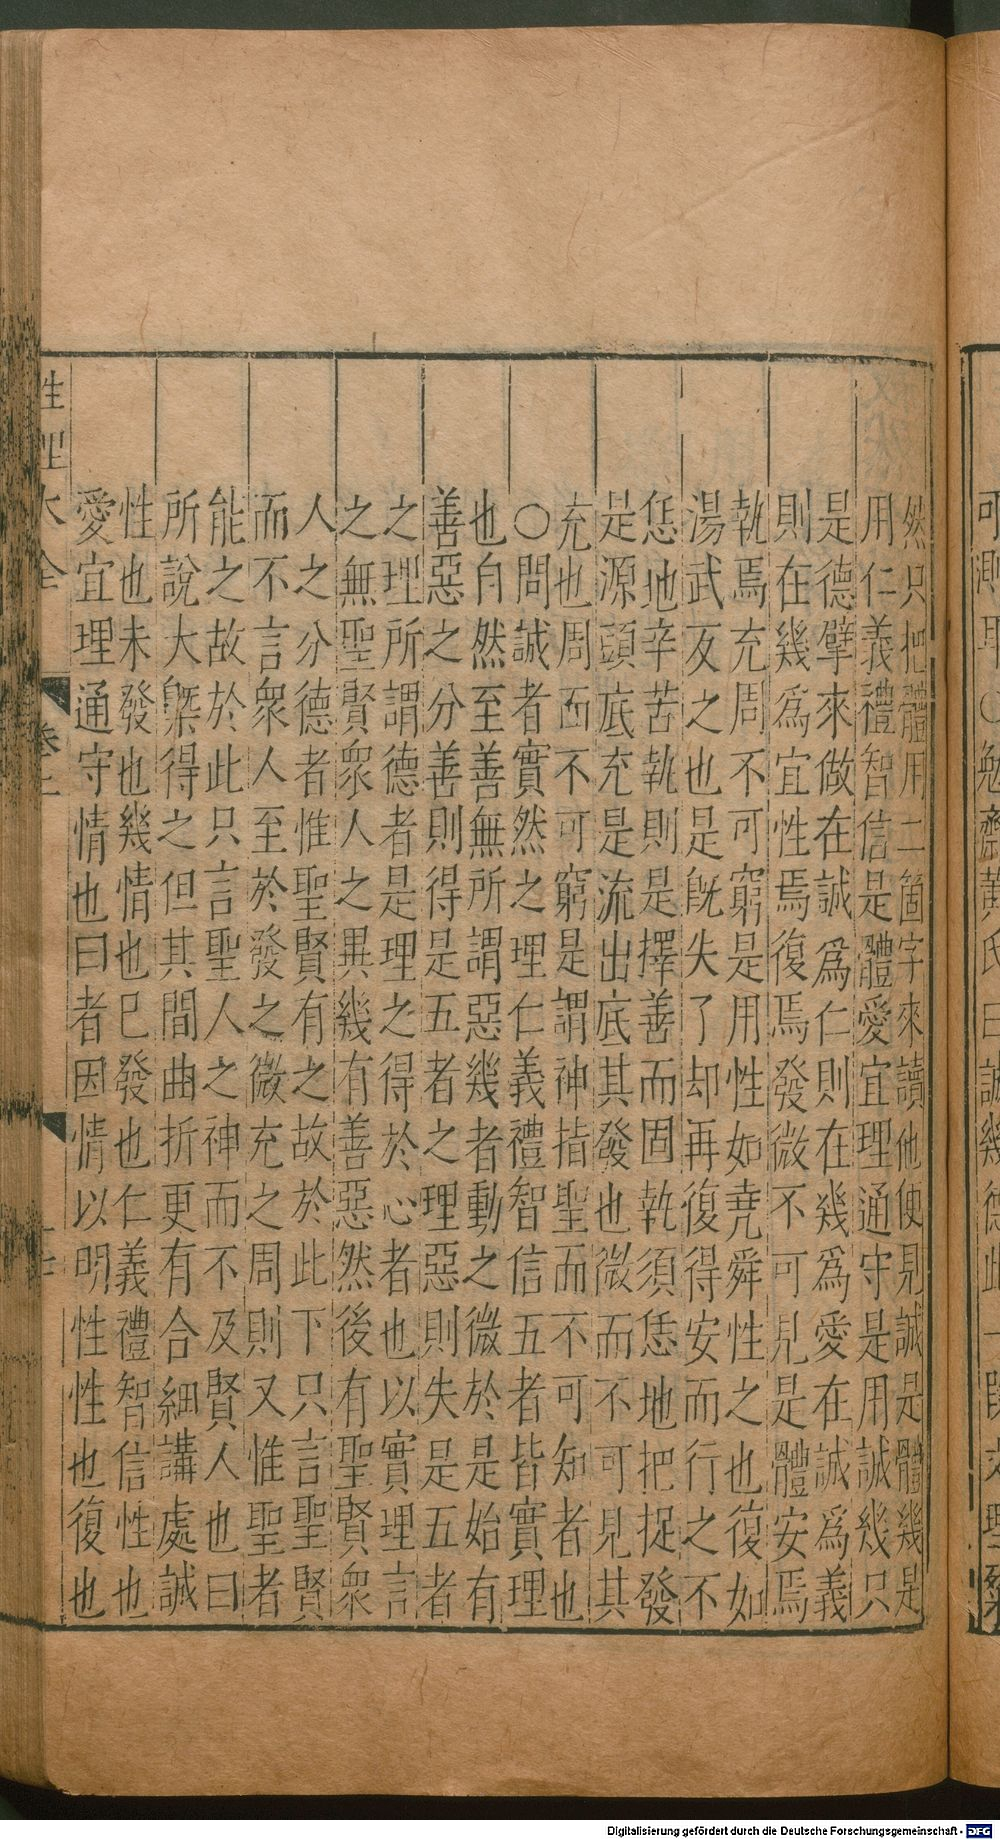 可測耶○勉齋黃氏曰誠幾德此一段文理粲
然只把體用二箇字來讀他便見誠是體幾是
用仁義禮智信是體愛宜理通守是用誠幾只
是德擘來做在誠為仁則在幾為愛在誠為義
則在幾為宜性焉復焉發微不可見是體安焉
執焉充周不可窮是用性如堯舜性之也復如
湯武反之也是既失了却再復得安而行之不
恁地辛苦執則是擇善而固執須恁地把捉發
是源頭底充是流出底其發也微而不可見其
充也周而不可窮是謂神指聖而不可知者也
○問誠者實然之理仁義禮智信五者皆實理
也自然至善無所謂惡幾者動之微於是始有
善惡之分善則得是五者之理惡則失是五者
之理所謂德者是理之得於心者也以實理言
之無聖賢衆人之異幾有善惡然後有聖賢衆
人之分德者惟聖賢有之故於此下只言聖賢
而不言衆人至於發之微充之周則又惟聖者
能之故於此只言聖人之神而不及賢人也曰
所說大槩得之但其間曲折更有合細講處誠
性也未發也幾情也已發也仁義禮智信性也
愛宜理通守情也曰者因情以明性性也復也
性理大全 卷二
Digitalisierung gefördert durch die Deutsche Forschungsgemeinschaft - DFG